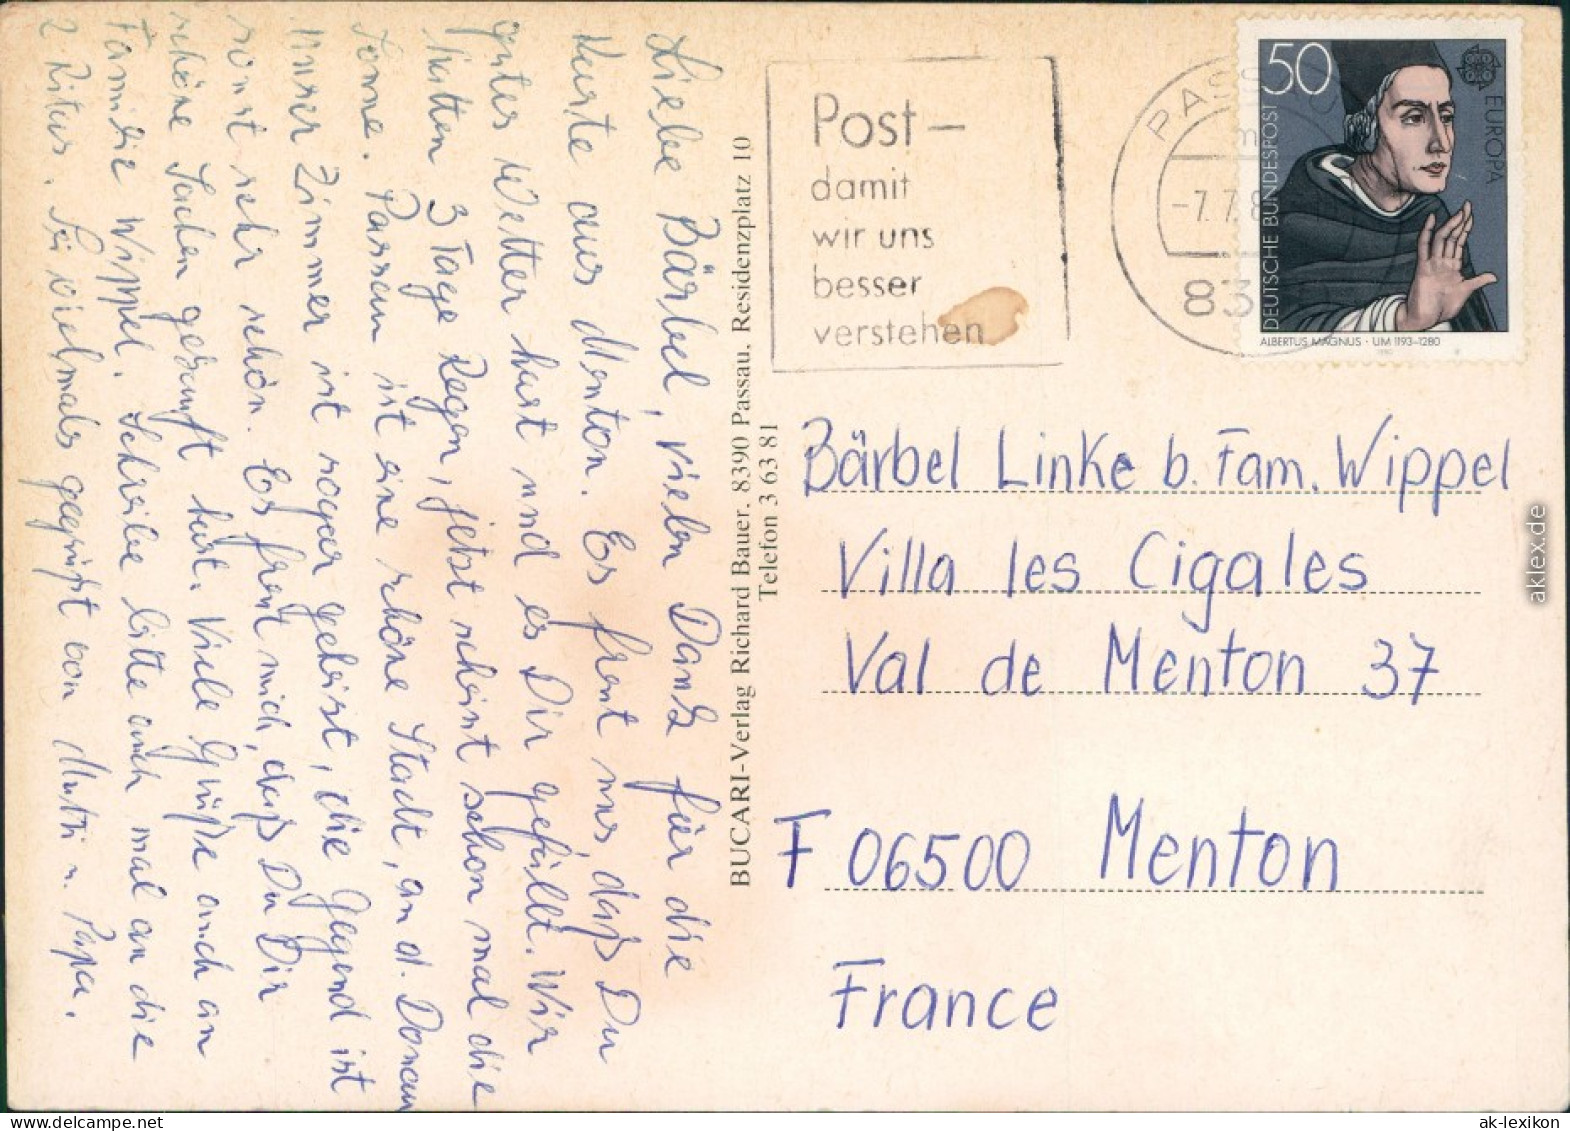 Liebe Bärbel, vielen Dank für die
Karte aus Menton. Es freut uns, daß Du
gutes Wetter hast und es Dir gefällt. Wir
hatten 3 Tage Regen, jetzt scheint schon mal die
Sonne. Passau ist eine schöne Stadt, an d. Donau
Unser Zimmer ist sogar geheizt, die Gegend ist
sonst sehr schön. Es freut mich, daß Du Dir
schöne Sachen gekauft hast. Viele Grüße auch an
Familie Wippel. Schreibe bitte auch mal an die
2 Ritas. Sei vielmals gegrüßt von Mutti u. Papa.
BUCARI-Verlag Richard Bauer, 8390 Passau, Residenzplatz 10
Telefon 3 63 81
Post –
damit
wir uns
besser
verstehen
PASSAU
-7.7.8
83
50
DEUTSCHE BUNDESPOST
EUROPA
ALBERTUS MAGNUS · UM 1193–1280
1980
Bärbel Linke b. Fam. Wippel
Villa les Cigales
Val de Menton 37
F 06500 Menton
France
aklex.de
ak-lexikon